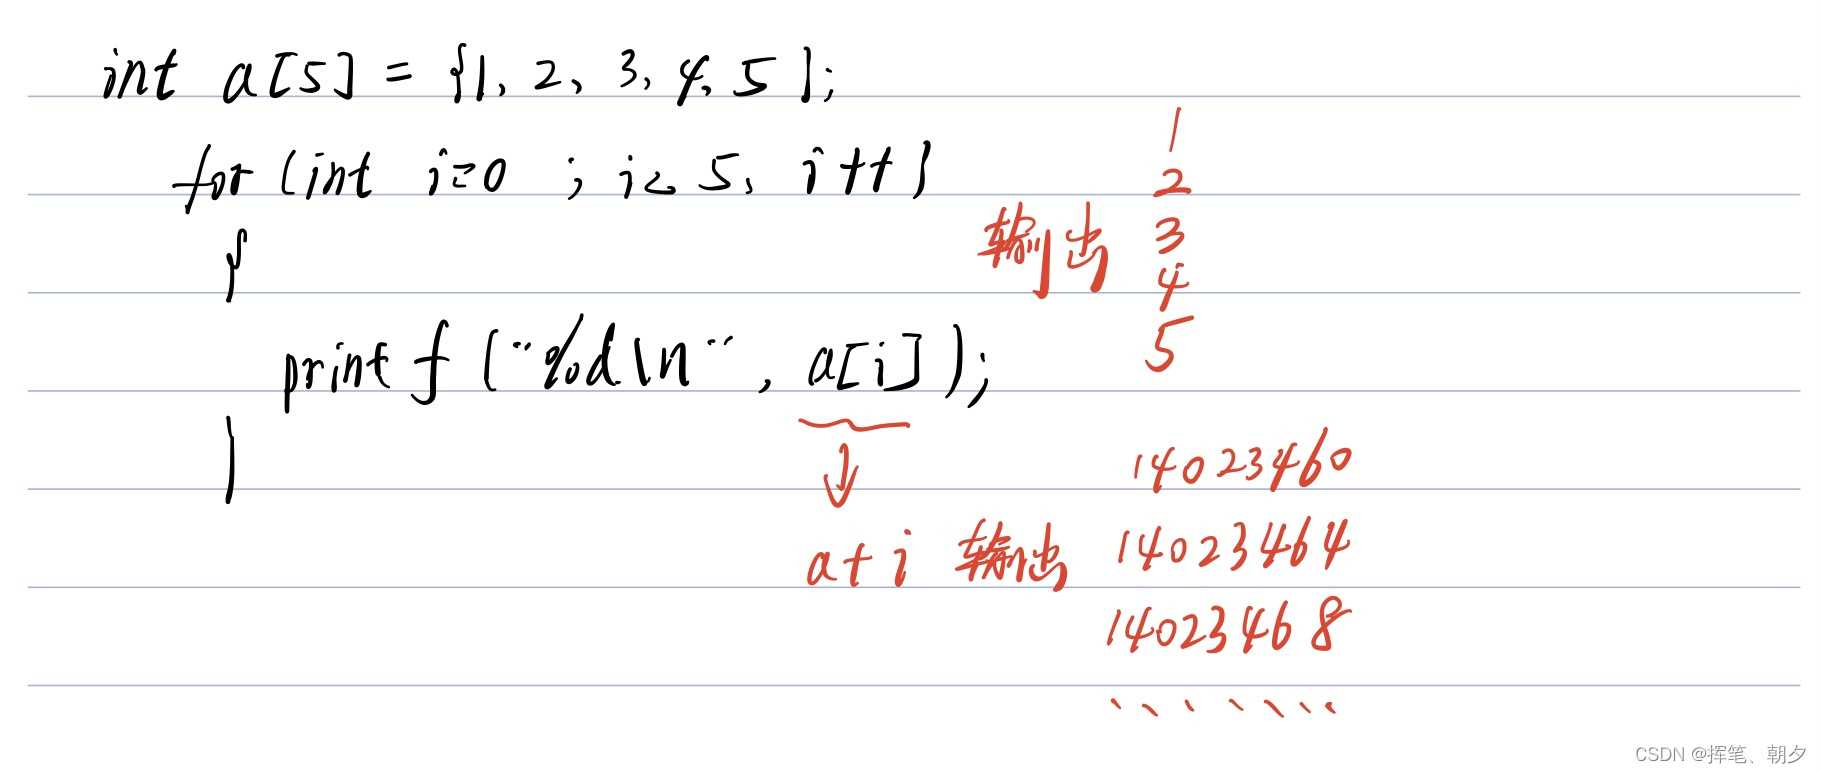 int a[5] = {1, 2, 3, 4, 5};
for (int i=0 ; i< 5; i++)
{
printf ("%d\n", a[i]);
}
输出
1
2
3
4
5
a+i 输出
14023460
14023464
14023468
......
CSDN @挥笔、朝夕